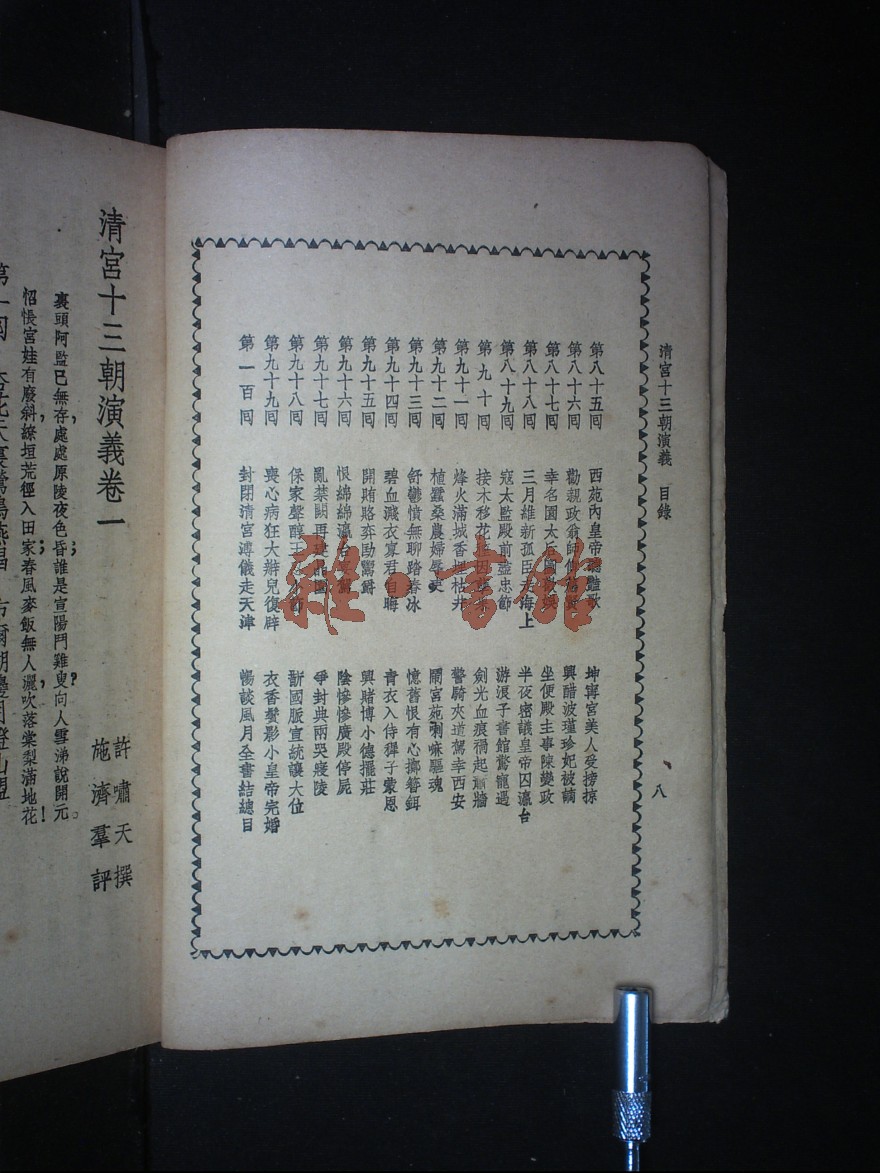 清宮十三朝演義 目錄
八
第八十五回 西苑內皇帝 豔歌 坤甯宮美人受搒掠
第八十六回 勸親政翁師傅 興醋波瑾珍妃被謫
第八十七回 幸名園太后 坐便殿主事陳變政
第八十八回 三月維新孤臣走海上 半夜密議皇帝囚瀛台
第八十九回 寇太監殿前盡忠節 游浪子書館驚寵遇
第九十回 接木移花 劍光血痕禍起蕭牆
第九十一回 烽火滿城香埋枯井 警騎夾道駕幸西安
第九十二回 植蠶桑農婦辱吏 鬧宮苑喇嘛驅魂
第九十三回 舒鬱憤無聊踏春冰 憶舊恨有心擲簪鉺
第九十四回 碧血濺衣寡君自晦 青衣入侍獧子蒙恩
第九十五回 開賄賂奕劻鬻爵 興賭博小德擺莊
第九十六回 恨綿綿瀛台 陰慘慘廣殿停屍
第九十七回 亂禁闕再 爭封典兩哭寢陵
第九十八回 保家聲醇王 斷國脈宣統讓大位
第九十九回 喪心病狂大辮兒復辟 衣香鬢影小皇帝完婚
第一百回 封閉清宮溥儀走天津 暢談風月全書結總目
雜·書館
清宮十三朝演義卷一
許嘯天撰
施濟羣評
裏頭阿監已無存，處處原陵夜色昏；誰是宣陽門難叟？向人雪涕說開元。
怊悵宮娃有廢斜，繚垣荒徑入田家；春風麥飯無人灑，吹落棠梨滿地花！